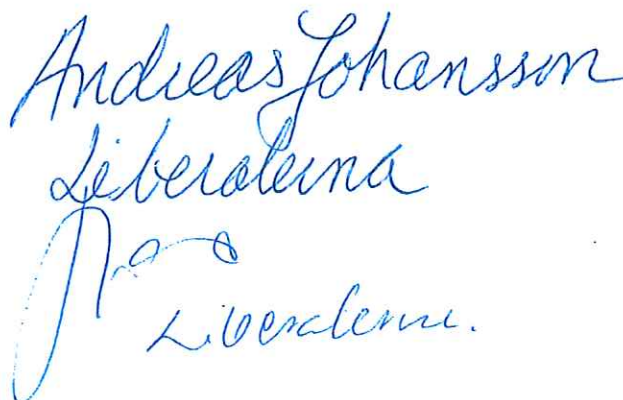 Andreas Johansson
Liberalerna
Liberalerna.